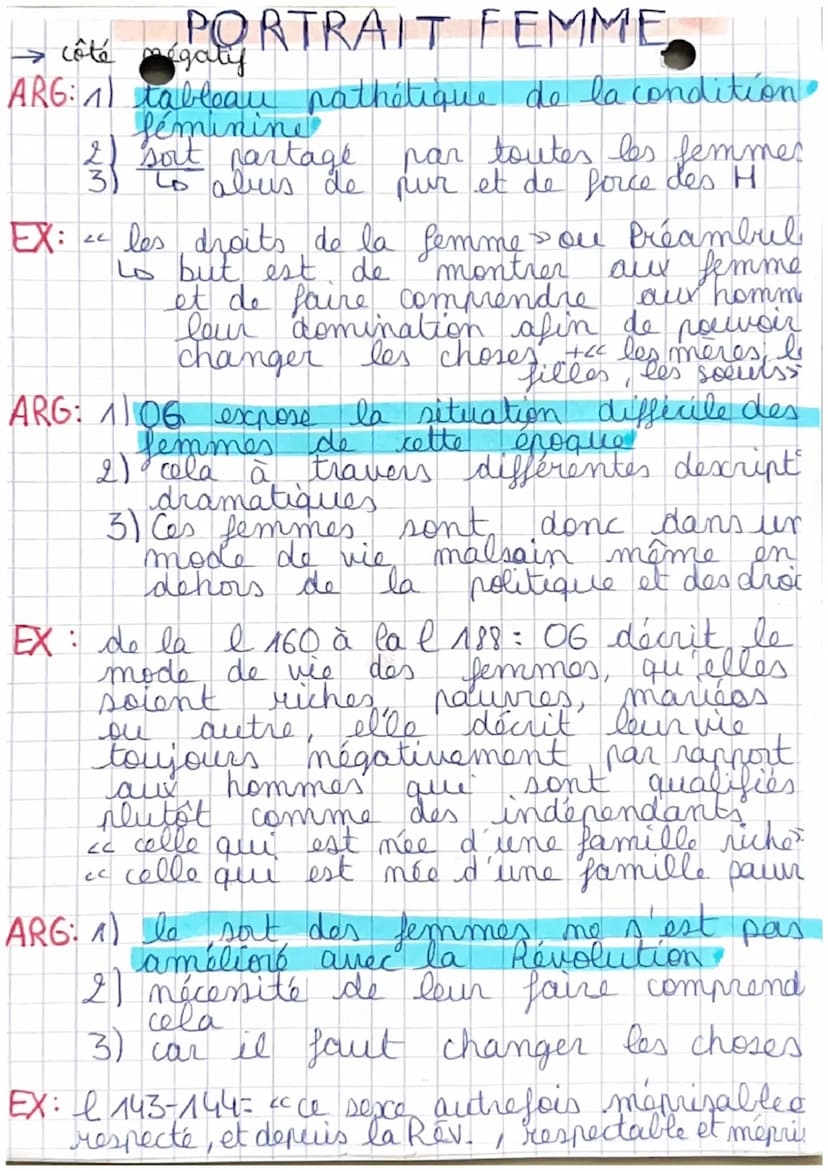 PORTRAIT FEMME
→ côté négatif
ARG: 1) tableau pathétique de la condition
féminine
2) sort partagé par toutes les femmes
3) ↳ abus de pvr et de force des H
EX: « les droits de la femme » ou Préambul
↳ but est de montrer aux femme
et de faire comprendre aux homm
leur domination afin de pouvoir
changer les choses +« les mères, le
filles, les soeurs»
ARG: 1) OG expose la situation difficile des
femmes de cette époque
2) cela à travers différentes descript°
dramatiques
3) Ces femmes sont donc dans un
mode de vie malsain même en
dehors de la politique et des droi
EX : de la l 160 à la l 188 : OG décrit le
mode de vie des femmes, qu'elles
soient riches, pauvres, mariées
ou autre, elle décrit leur vie
toujours négativement par rapport
aux hommes qui sont qualifiés
plutôt comme des indépendants
« celle qui est née d'une famille riche»
« celle qui est née d'une famille pauv
ARG: 1) le sort des femmes ne s'est pas
amélioré avec la Révolution
2) nécessité de leur faire comprend
cela
3) car il faut changer les choses
EX: l 143-144= «ce sexe autrefois méprisable e
respecté, et depuis la Rév., respectable et mépri